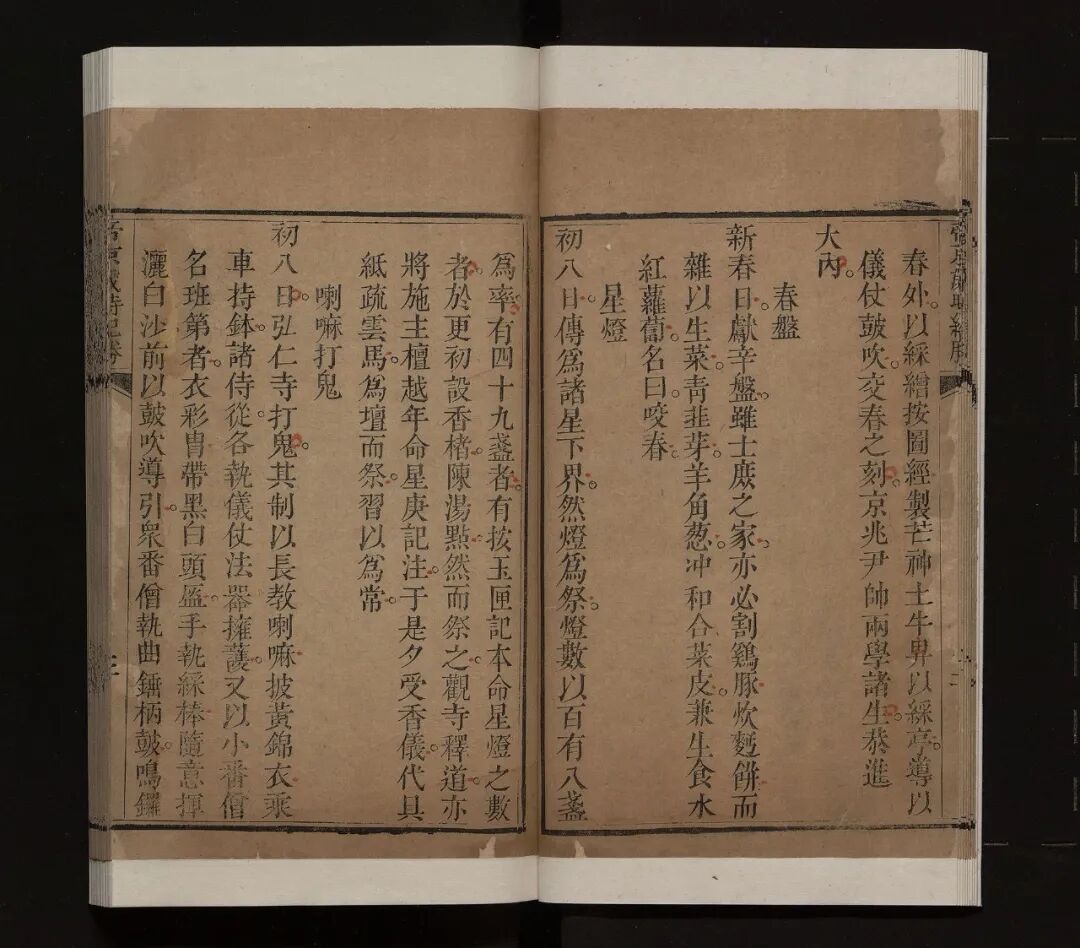 春外。以綵繒按圖經製芒神土牛舁以綵亭。導以
儀仗鼓吹。交春之刻。京兆尹帥兩學諸生。恭進
大內。
春盤
新春日獻辛盤。雖士庶之家。亦必割鷄豚。炊麪餅。而
雜以生菜。靑韮芽。羊角葱。冲和合菜皮。兼生食水
紅蘿蔔。名曰咬春。
星燈
初八日。傳爲諸星下界。然燈爲祭。燈數以百有八盞
爲率。有四十九盞者。有按玉匣記本命星燈之數
者。於更初設香楮。陳湯點。然而祭之。觀寺釋道。亦
將施主檀越年命星庚記注。于是夕受香儀。代具
紙疏雲馬。爲壇而祭。習以爲常。
喇嘛打鬼
初八日。弘仁寺打鬼。其制以長教喇嘛披黃錦衣乘
車持鉢。諸侍從各執儀仗法器擁護。又以小番僧
名班第者。衣彩冑。帶黑白頭盔。手執綵棒。隨意揮
灑白沙。前以鼓吹導引。衆番僧執曲錘柄鼓。鳴鑼